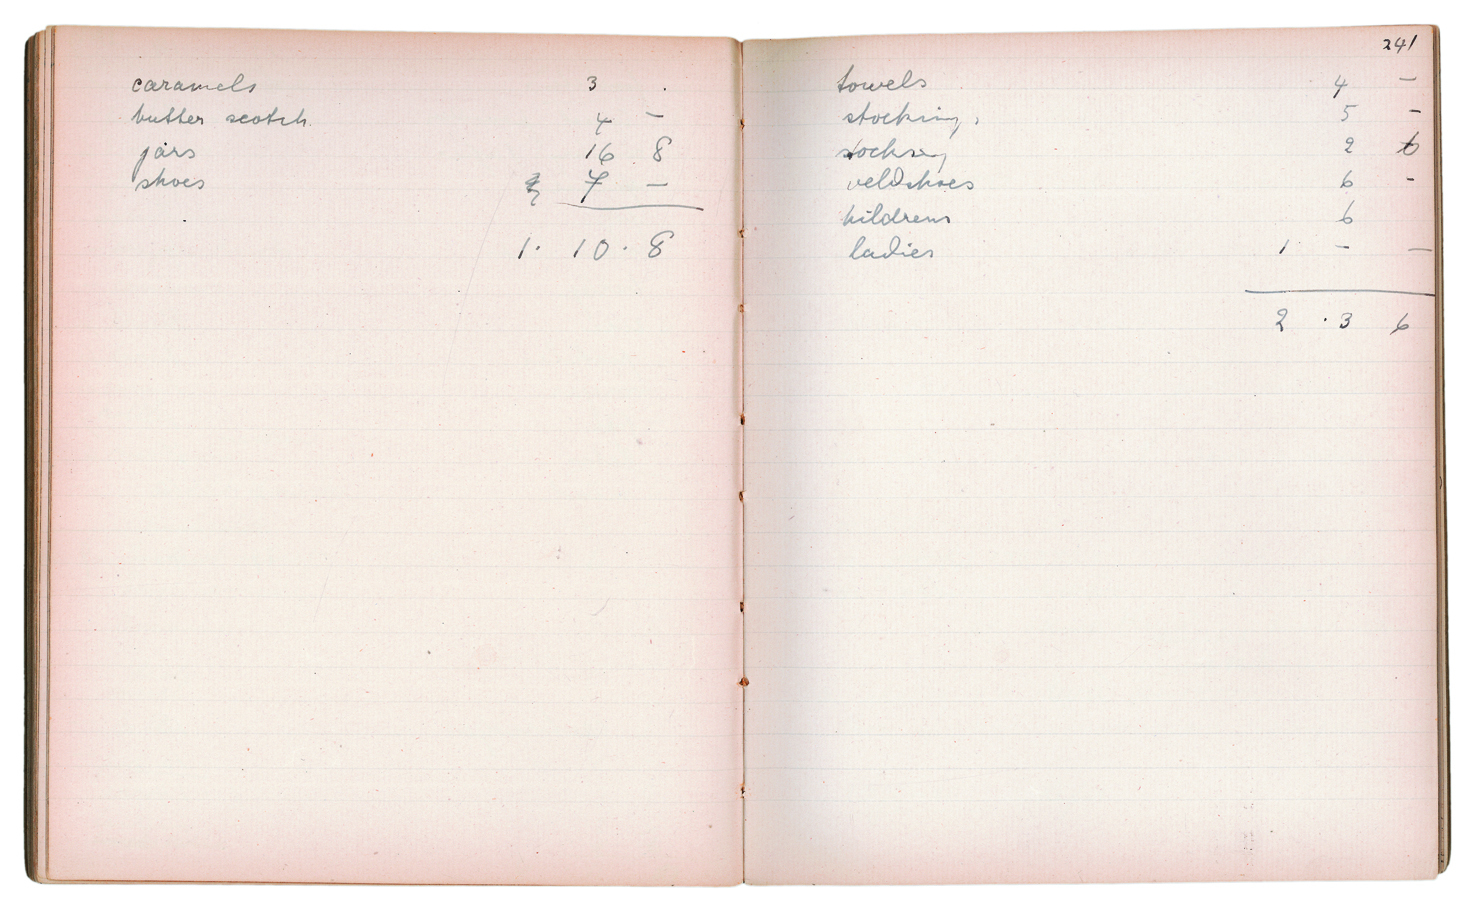 caramels 3 .
butter scotch. 4 –
jars 16 8
shoes 7 –
1. 10. 8
241
towels 4 –
stockings 5 –
2 6
veldshoes 6 –
kildrens 6
ladies 1 – –
2 . 3 6